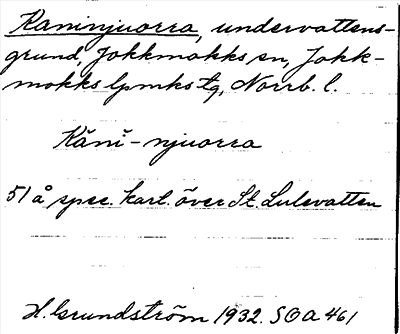 Kaninjuorra, undervattens-
grund, Jokkmokks sn, Jokk-
mokks lpmks tg, Norrb. l.
Kănĭ-njuorra
51 å spec. karl. över St. Lulevatten
H. Grundström 1932. SOA 461